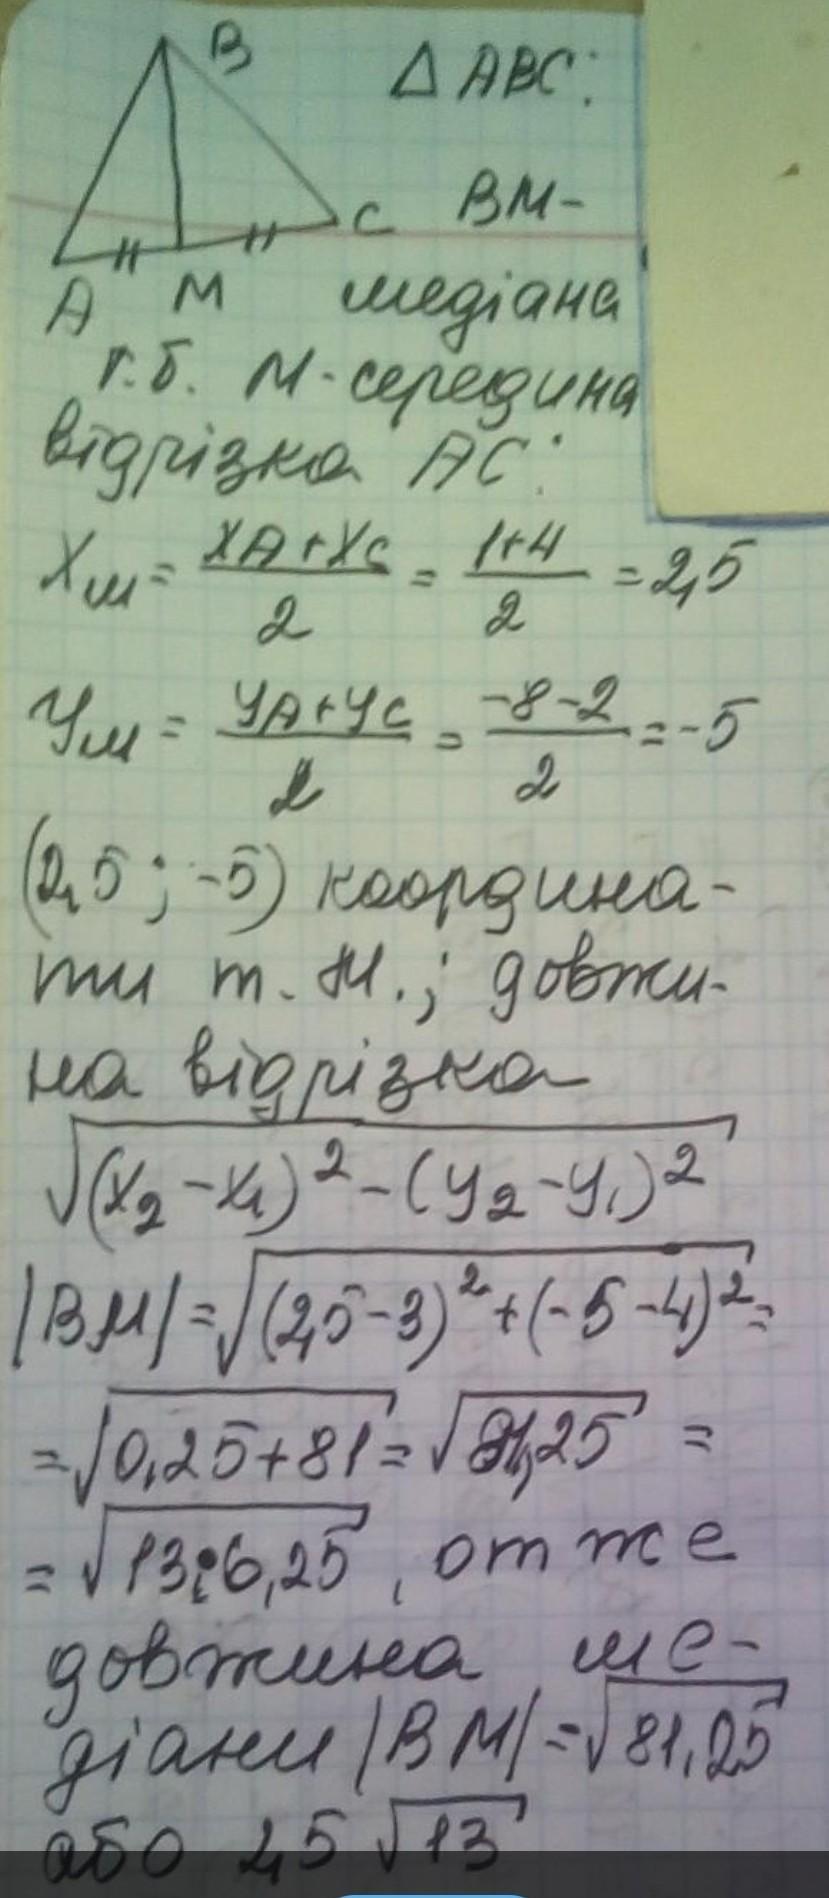 B
△ ABC:
C BM-
A M медіана
т.б. М-середина
відрізка AC:
Xм = (XA+XC)/2 = (1+4)/2 = 2,5
Yм = (YA+YC)/2 = (-8-2)/2 = -5
(2,5 ; -5) координа-
ти т. М.; довжи-
на відрізка
√((X₂-X₁)²-(Y₂-Y₁)²)
|BM| = √((2,5-3)²+(-5-4)²) =
= √(0,25+81) = √(81,25) =
= √(13·6,25), отже
довжина ме-
діани |BM| = √(81,25)
або 2,5 √13